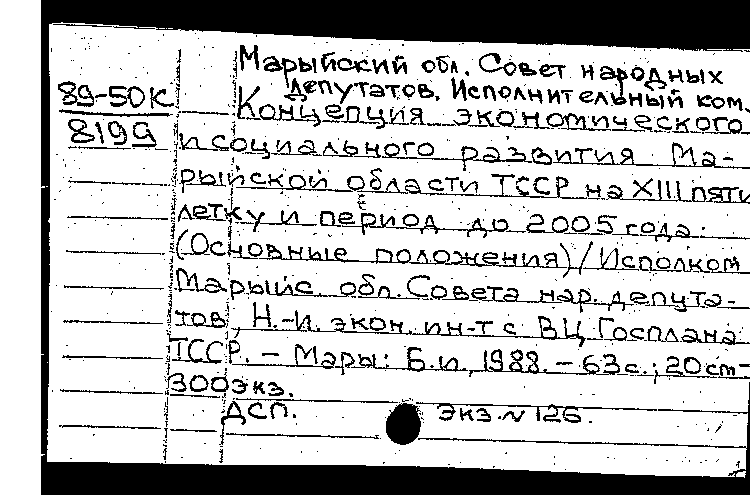 Марыйский обл. Совет народных
депутатов. Исполнительный ком.
89-50К
8199
Концепция экономического
и социального развития Ма-
рыйской области ТССР на XIII пяти
летку и период до 2005 года:
(Основные положения)/Исполком
Марыйс. обл. Совета нар. депута-
тов, Н.-И. экон. ин-т с ВЦ Госплана
ТССР. - Мары: Б.и., 1988. - 63 с.; 20 см -
300 экз.
ДСП.
экз. № 126.